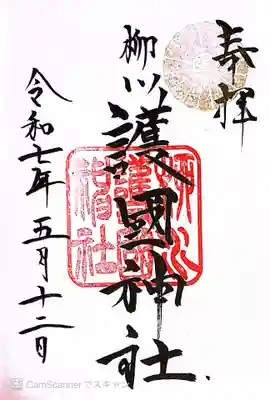 奉拝
柳川護國神社
令和七年五月十二日
CamScannerでスキャン